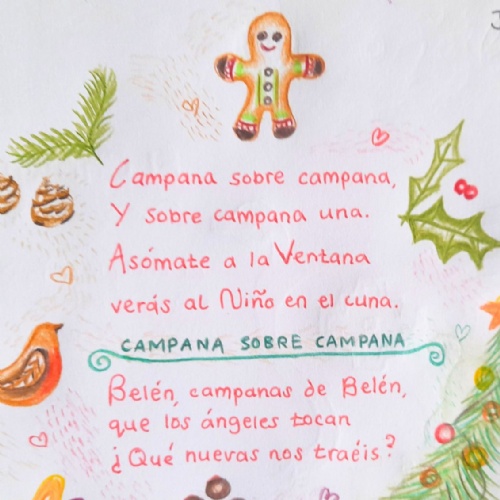 Campana sobre campana,
Y sobre campana una.
Asómate a la Ventana
verás al Niño en el cuna.
CAMPANA SOBRE CAMPANA
Belén, campanas de Belén,
que los ángeles tocan
¿Qué nuevas nos traéis?